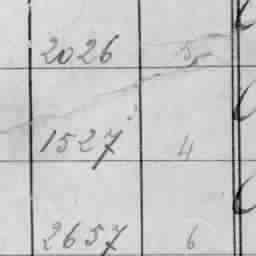 2026 5
1527 4
2657 6